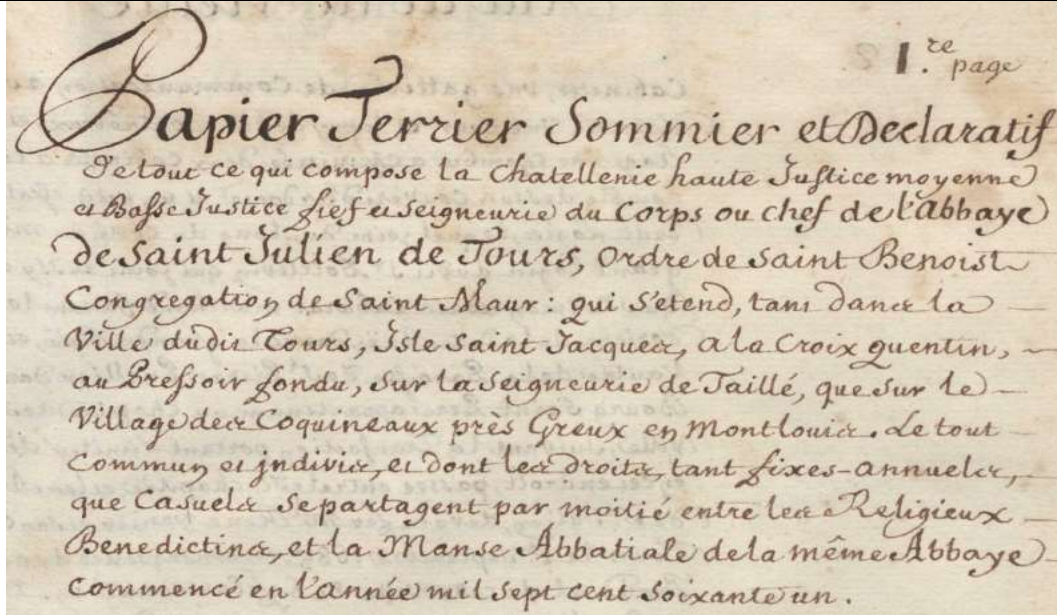 1.re page
Papier Terrier Sommier et Declaratif
De tout ce qui compose la Chatellenie haute Justice moyenne
et Basse Justice fief et Seigneurie du Corps ou chef de l'abbaye
de Saint Julien de Tours, ordre de Saint Benoist
Congregation de Saint Maur : qui s'etend, tant dans la
Ville dudit Tours, Isle Saint Jacques, a la Croix quentin,
au Pressoir fondu, sur la Seigneurie de Taillé, que sur le
Village des Coquineaux près Greux en Montlouis. Le tout
Commun et jndivis, et dont les droits, tant fixes-annuels,
que Casuels se partagent par moitié entre les Religieux
Benedictins, et la Manse Abbatiale de la même Abbaye
Commencé en l'année mil sept cent soixante un.